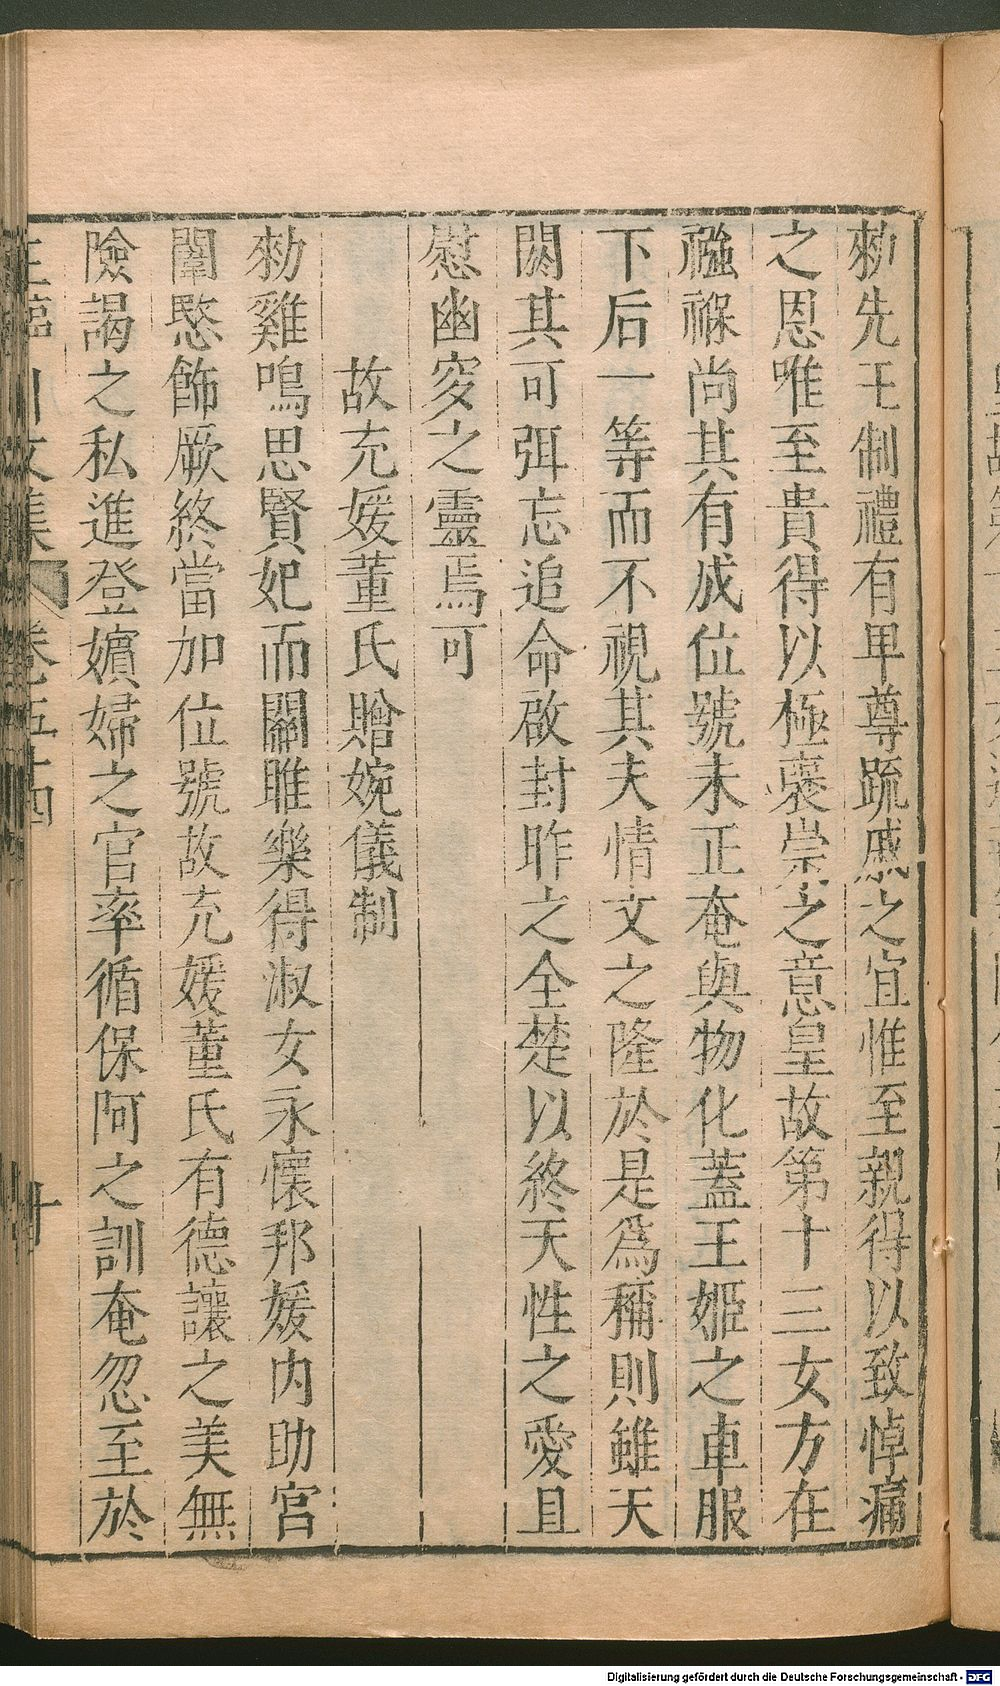 勑先王制禮有卑尊疏戚之宜惟至親得以致悼痛
之恩唯至貴得以極襃崇之意皇故第十三女方在
襁褓尚其有成位號未正奄與物化蓋王姬之車服
下后一等而不視其夫情文之隆於是爲稱則雖天
閼其可弭忘追命啟封昨之全楚以終天性之愛且
慰幽穸之靈焉可
故充媛董氏贈婉儀制
勑雞鳴思賢妃而關雎樂得淑女永懷邦媛內助宮
闈愍飾厥終當加位號故充媛董氏有德讓之美無
險謁之私進登嬪婦之官率循保阿之訓奄忽至於
王臨川文集 卷五十四 十
Digitalisierung gefördert durch die Deutsche Forschungsgemeinschaft - DFG